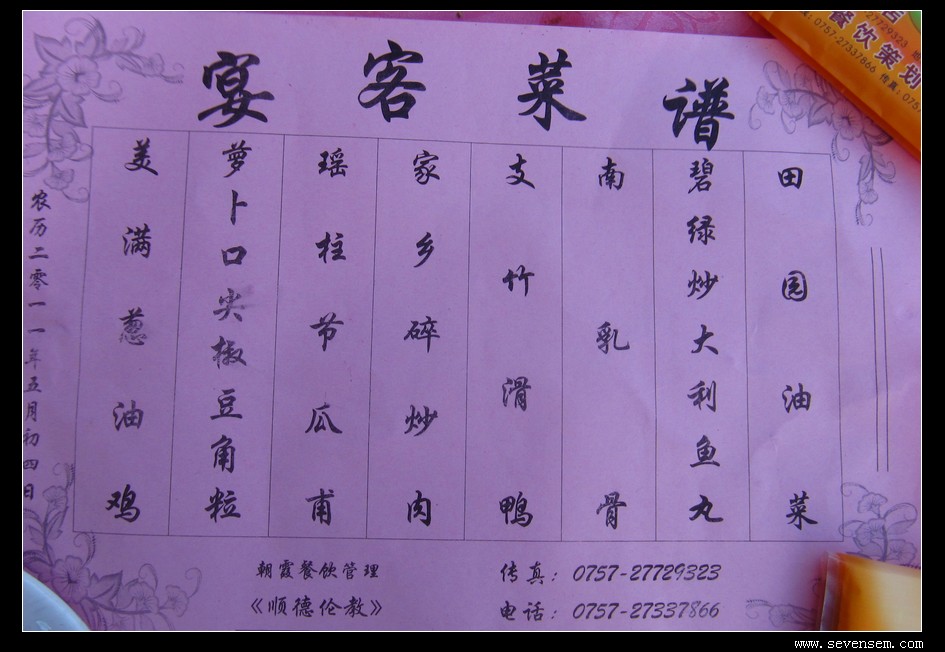 宴客菜谱
美满葱油鸡
萝卜口尖椒豆角粒
瑶柱节瓜甫
家乡碎炒肉
支竹滑鸭
南乳骨
碧绿炒大利鱼丸
田园油菜
农历二零一一年五月初四日
朝霞餐饮管理
《顺德伦教》
传真：0757-27729323
电话：0757-27337866
27729323
餐饮策划
0757-27337866 传真：075
www.sevensem.com